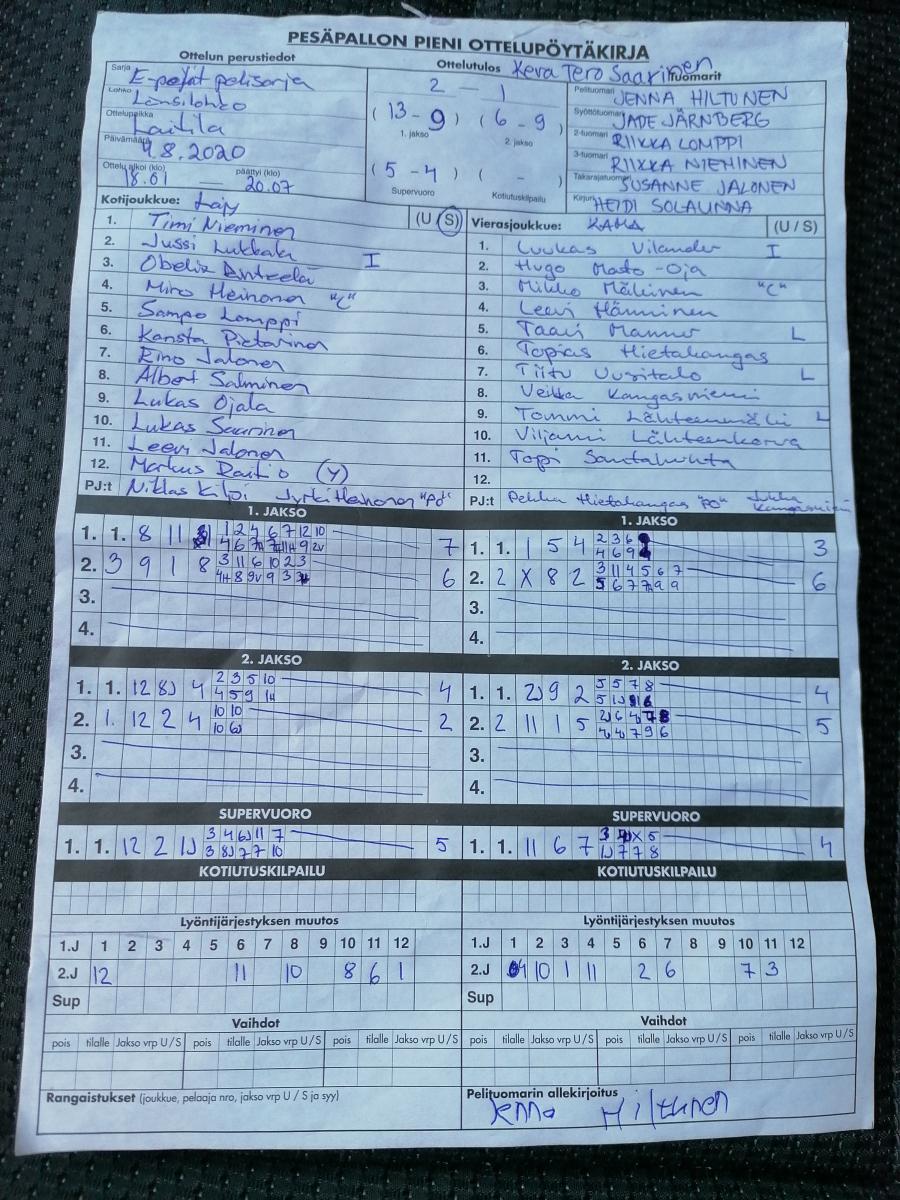 PESÄPALLON PIENI OTTELUPÖYTÄKIRJA
Ottelun perustiedot
Ottelutulos Keva Tero Saarinen
Tuomarit
Sarja E-pojat pelisarja
Lohko Länsilohko
Ottelupaikka Laitila
Päivämäärä 4.8.2020
Ottelu alkoi (klo) päättyi (klo)
18.01 — 20.07
2 — 1
(13 - 9) (6 - 9)
1. jakso 2. jakso
(5 - 4) ( - )
Supervuoro Kotiutuskilpailu
Pelituomari JENNA HILTUNEN
Syöttötuomari JADE JÄRNBERG
2-tuomari RIIKKA LOMPPI
3-tuomari RIIKKA NIEMINEN
Takarajatuomari SUSANNE JALONEN
Kirjuri HEIDI SOLAUNNA
Kotijoukkue: (U / S)
1. Timi Nieminen
2. Jussi Lukkala I
3. Obelix
4. Miro Heinonen "C"
5. Sampo Lomppi
6. Konsta Pietarinen
7. Rino Jalonen
8. Albert Salminen
9. Lukas Ojala
10. Lukas Saarinen
11. Leevi Jalonen
12. Markus Rautio (Y)
PJ:t Niklas Kilpi Jyrki Heinonen "PJ"
Vierasjoukkue: KAMA (U / S)
1. Luukas Vilander I
2. Hugo Masto-Oja
3. Mikko Mäkinen "C"
4. Leevi Hänninen
5. Taavi Manner L
6. Topias Hietakangas
7. Tiitu Uusitalo L
8. Veikka Kangasniemi
9. Tommi Lähteenmäki L
10. Viljami Lähteenkorva
11. Topi Santaluhta
12.
PJ:t Pekka Hietakangas "PJ" Jukka Kangasniemi
1. JAKSO
1. 1. 8 11 1 2 4 6 7 12 10 7
4 6 9
2. 3 9 1 8 3 11 6 10 2 3 6
3.
4.
1. JAKSO
1. 1. 1 5 4 2 3 6 3
4 6 9
2. 2 X 8 2 3 11 4 5 6 7 6
5 6 7 9 9
3.
4.
2. JAKSO
1. 1. 12 8J 4 2 3 5 10 4
4 5 9 1H
2. 1. 12 2 4 10 10 2
10 6J
3.
4.
2. JAKSO
1. 1. 2J 9 2 5 5 7 8 4
2. 2 11 1 5 5
3.
4.
SUPERVUORO
1. 1. 12 2 1J 3 4 6J 11 7 5
3 8J 7 7 10
SUPERVUORO
1. 1. 11 6 7 X 5 4
1J 7 7 8
KOTIUTUSKILPAILU
KOTIUTUSKILPAILU
Lyöntijärjestyksen muutos
1.J 1 2 3 4 5 6 7 8 9 10 11 12
2.J 12 11 10 8 6 1
Sup
Lyöntijärjestyksen muutos
1.J 1 2 3 4 5 6 7 8 9 10 11 12
2.J 4 10 1 11 2 6 7 3
Sup
Vaihdot
pois tilalle Jakso vrp U / S pois tilalle Jakso vrp U / S pois tilalle Jakso vrp U / S
Vaihdot
pois tilalle Jakso vrp U / S pois tilalle Jakso vrp U / S pois tilalle Jakso vrp U / S
Rangaistukset (joukkue, pelaaja nro, jakso vrp U / S ja syy)
Pelituomarin allekirjoitus
Jenna Hiltunen